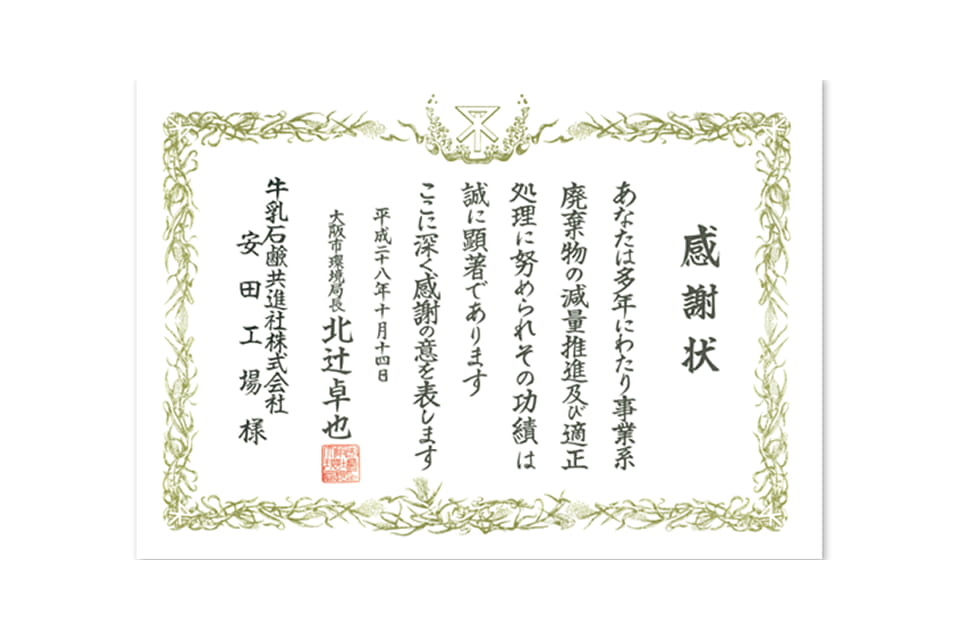 感謝状
あなたは多年にわたり事業系
廃棄物の減量推進及び適正
処理に努められその功績は
誠に顕著であります
ここに深く感謝の意を表します
平成二十八年十月十四日
大阪市環境局長 北辻卓也
牛乳石鹸共進社株式会社
安田工場様